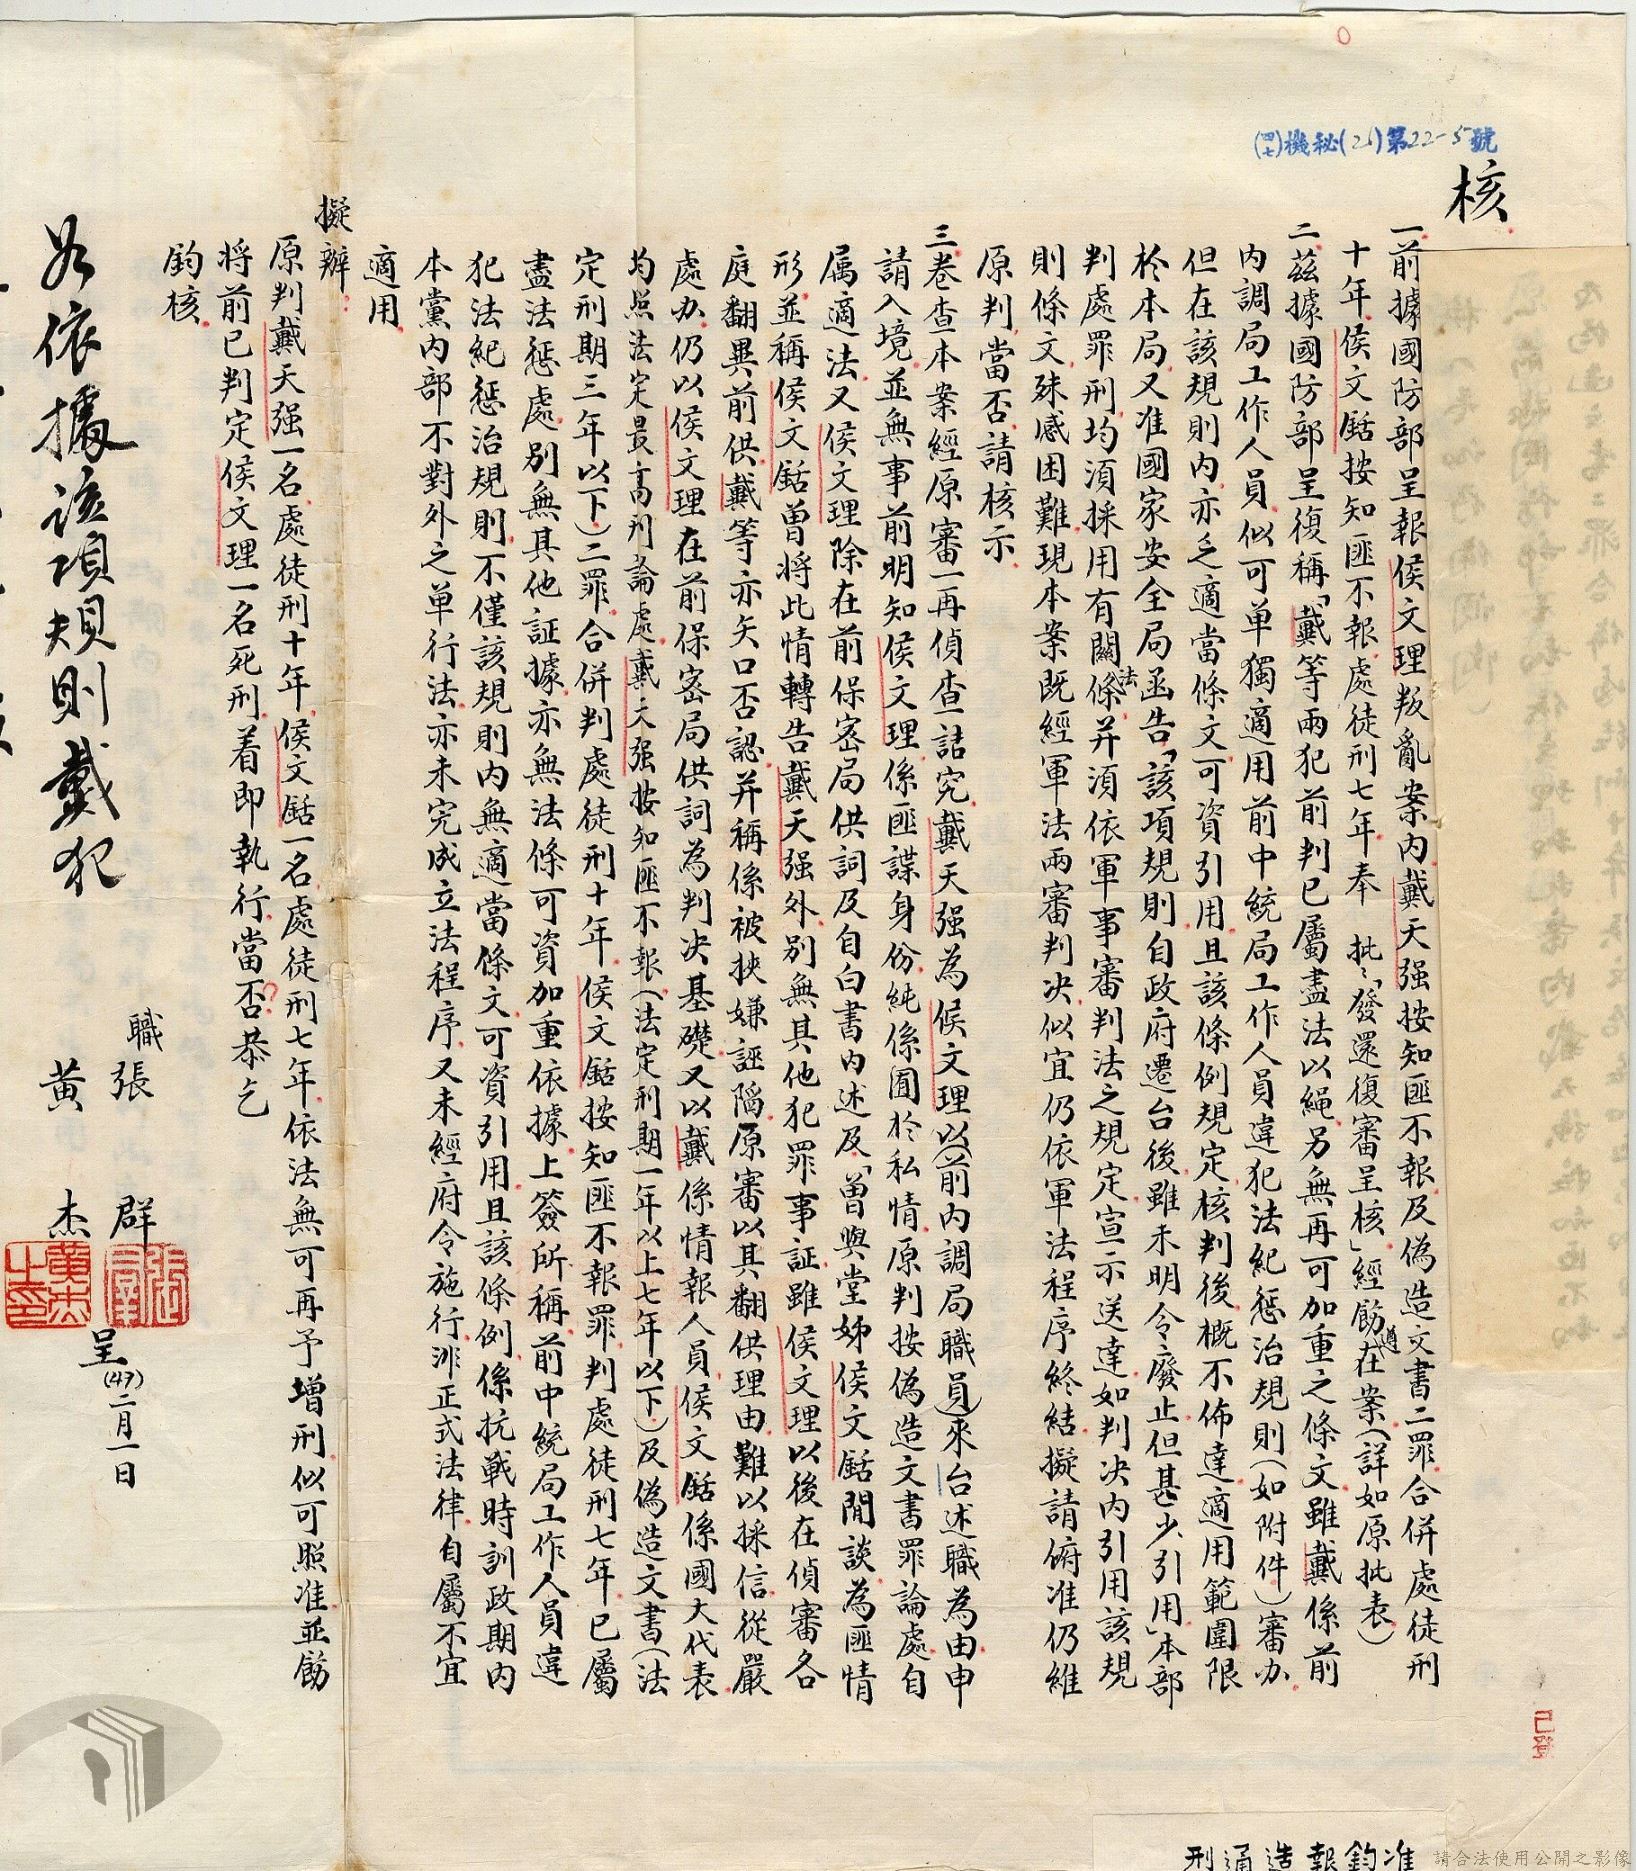 (四七)機秘(21)第22-5號
核
一前據國防部呈報侯文理叛亂案內戴天强按知匪不報及偽造文書二罪合併處徒刑
十年侯文䤚按知匪不報處徒刑七年奉 批:「發還復審呈核」經飭遵在案(詳如原批表)
二茲據國防部呈復稱「戴等兩犯前判已屬盡法以繩另無再可加重之條文雖戴係前
內調局工作人員似可单獨適用前中統局工作人員違犯法紀懲治規則(如附件)審办
但在該規則內亦乏適當條文可資引用且該條例規定核判後概不佈達適用範圍限
於本局又准國家安全局函告「該項規則自政府遷台後雖未明令廢止但甚少引用」本部
判處罪刑均須採用有關法條并須依軍事審判法之規定宣示送達如判決內引用該規
則條文殊感困難現本案既經軍法兩審判決似宜仍依軍法程序終結擬請俯准仍維
原判當否請核示
三卷查本案經原審一再偵查詰究戴天强為侯文理以(前內調局職員)來台述職為由申
請入境並無事前明知侯文理係匪諜身份純係囿於私情原判按偽造文書罪論處自
属適法又侯文理除在前保密局供詞及自白書內述及「曾與堂姊侯文䤚閒談為匪情
形並稱侯文䤚曾將此情轉告戴天强外別無其他犯罪事証雖侯文理以後在偵審各
庭翻異前供戴等亦矢口否認并稱係被挾嫌誣陷原審以其翻供理由難以採信從嚴
處办仍以侯文理在前保密局供詞為判決基礎又以戴係情報人員侯文䤚係國大代表
均照法定最高刑論處戴天强按知匪不報(法定刑期一年以上七年以下)及偽造文書(法
定刑期三年以下)二罪合併判處徒刑十年侯文䤚按知匪不報罪判處徒刑七年已屬
盡法懲處別無其他証據亦無法條可資加重依據上簽所稱前中統局工作人員違
犯法紀懲治規則不僅該規則內無適當條文可資引用且該條例係抗戰時訓政期內
本黨內部不對外之単行法亦未完成立法程序又未經府令施行非正式法律自屬不宜
適用
擬辦:
原判戴天强一名處徒刑十年侯文䤚一名處徒刑七年依法無可再予增刑似可照准並飭
將前已判定侯文理一名死刑着即執行當否?恭乞
鈞核
職張 群
黃 杰
呈(47)二月一日
如依據該項規則戴犯
准
鈞
報
造
通
刑
請合法使用公開之影像